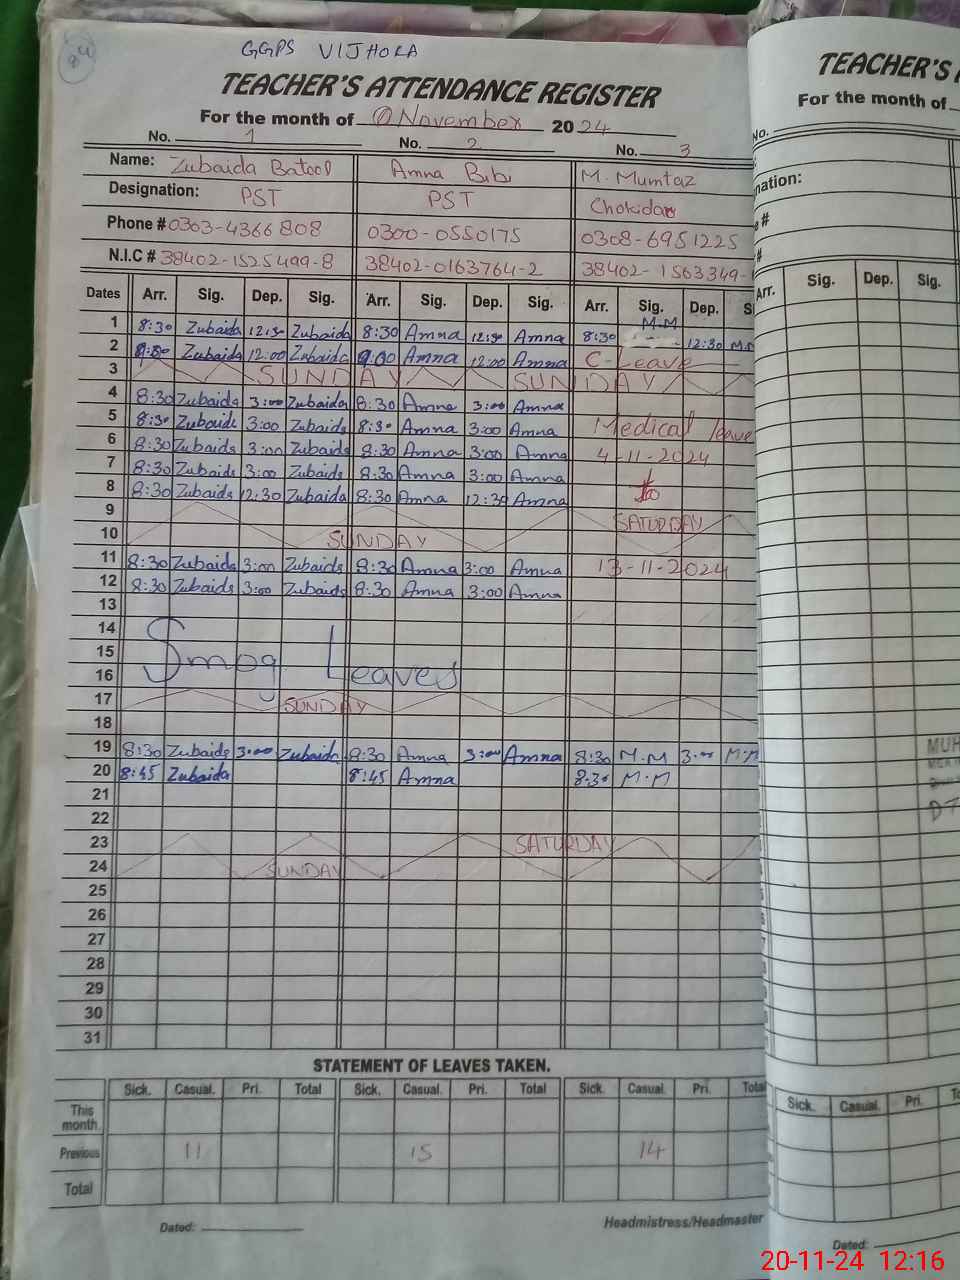 84
GGPS VIJHORA
TEACHER'S ATTENDANCE REGISTER
For the month of November 2024
No. 1 No. 2 No. 3
Name: Zubaida Batool Amna Bibi M. Mumtaz
Designation: PST PST Chokidar
Phone # 0303-4366808 0300-0550175 0308-6951225
N.I.C # 38402-1525499-8 38402-0163764-2 38402-1563349-
Dates Arr. Sig. Dep. Sig. Arr. Sig. Dep. Sig. Arr. Sig. Dep. S
1 8:30 Zubaida 12:30 Zubaida 8:30 Amna 12:30 Amna 8:30 M.M 12:30 M.M
2 9:00 Zubaida 12:00 Zubaida 9:00 Amna 12:00 Amna C-Leave
3 SUNDAY SUNDAY
4 8:30 Zubaida 3:00 Zubaida 8:30 Amna 3:00 Amna
5 8:30 Zubaida 3:00 Zubaida 8:30 Amna 3:00 Amna Medical leave
6 8:30 Zubaida 3:00 Zubaida 8:30 Amna 3:00 Amna 4-11-2024
7 8:30 Zubaida 3:00 Zubaida 8:30 Amna 3:00 Amna
8 8:30 Zubaida 12:30 Zubaida 8:30 Amna 12:30 Amna to
9 SATURDAY
10 SUNDAY
11 8:30 Zubaida 3:00 Zubaida 8:30 Amna 3:00 Amna 13-11-2024
12 8:30 Zubaida 3:00 Zubaida 8:30 Amna 3:00 Amna
13
14
15 Smog Leaves
16
17 SUNDAY
18
19 8:30 Zubaida 3:00 Zubaida 8:30 Amna 3:00 Amna 8:30 M.M 3:00 M.M
20 8:45 Zubaida 8:45 Amna 8:30 M.M
21
22
23 SATURDAY
24 SUNDAY
25
26
27
28
29
30
31
STATEMENT OF LEAVES TAKEN.
Sick. Casual. Pri. Total Sick. Casual. Pri. Total Sick. Casual. Pri. Total
This month.
Previous 11 15 14
Total
Dated: Headmistress/Headmaster
TEACHER'S A
For the month of
No.
nation:
#
#
Arr. Sig. Dep. Sig.
MUH
Sick. Casual. Pri. To
Dated:
20-11-24 12:16